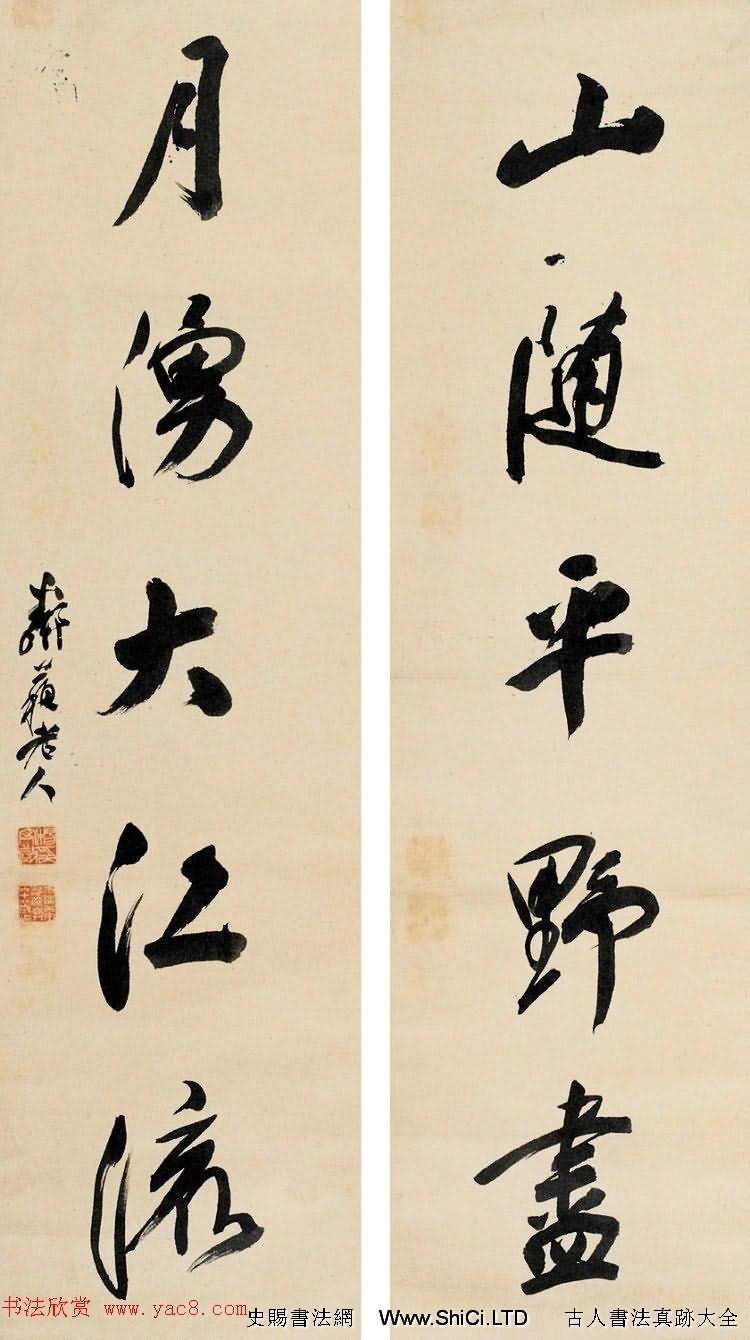 山随平野盡
月湧大江流
鄰蘇老人
书法欣赏 www.yac8.com
史賜書法網 Www.ShiCi.LTD 古人書法真跡大全